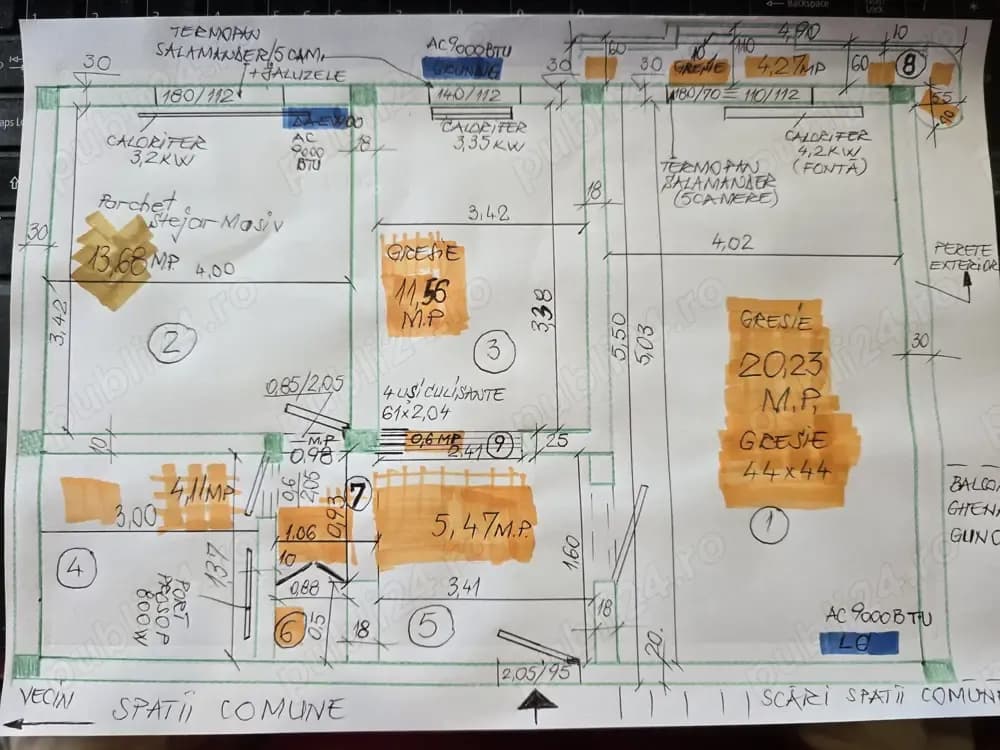 TERMOPAN
SALAMANDER/5CAM.
+JALUZELE
30
180/112
CALORIFER
3,2KW
AC
9000
BTU
18
AC 9000 BTU
140/112
CALORIFER
3,35KW
30
30
60
10
110
4,90
10
GRESIE
4,27MP
60
8
55
180/70
110/112
CALORIFER
4,2KW
(FONTĂ)
TERMOPAN
SALAMANDER
(5CAMERE)
18
Parchet
Stejar Masiv
13,68 MP.
4,00
30
3,42
2
3,42
GRESIE
11,56
M.P
3,38
3
4,02
5,50
5,03
PERETE
EXTERIOR
30
GRESIE
20,23
M.P.
GRESIE
44x44
1
0,85/2,05
4 UȘI CULISANTE
61x2,04
10
M.P
0,98
0,6 MP
2,41
9
25
4,11MP
3,00
0,6
2,05
0,93
7
5,47M.P.
1,06
10
1,37
4
PORT
PROSOP
800W
0,88
6
0,5
18
3,41
5
1,60
18
20.
2,05/95
AC 9000BTU
LG
BALCON
GHENA
GUNO
VECIN
SPATII COMUNE
SCĂRI SPATII COMUNE
publi24.ro